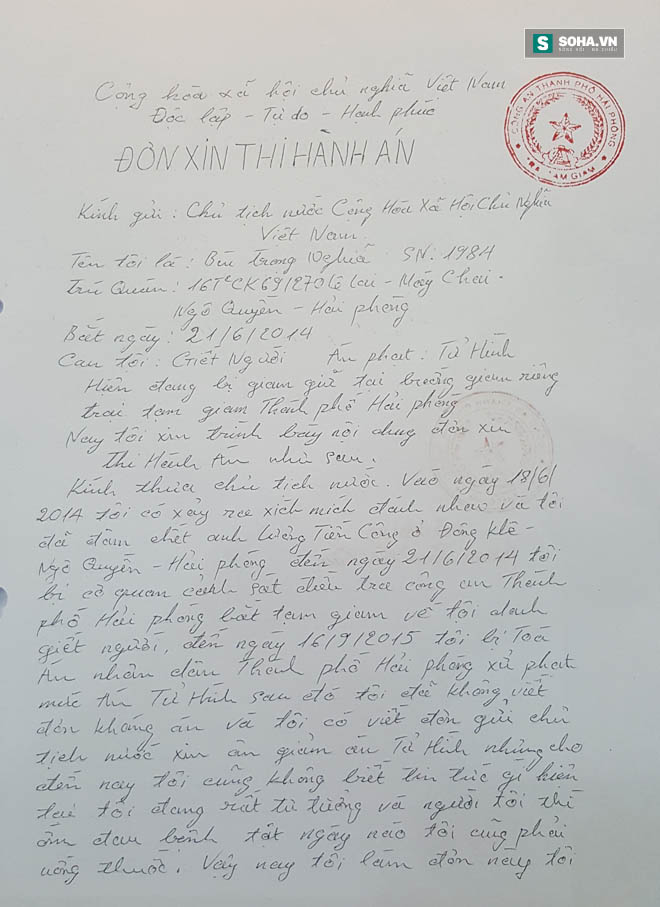 SOHA.VN
Cộng hòa xã hội chủ nghĩa Việt Nam
Độc lập - Tự do - Hạnh phúc
CÔNG AN THÀNH PHỐ HẢI PHÒNG
TRẠI TẠM GIAM
ĐƠN XIN THI HÀNH ÁN
Kính gửi : Chủ tịch nước Cộng Hòa Xã Hội Chủ Nghĩa
Việt Nam.
Tên tôi là : Bùi Trọng Nghĩa SN : 1984
Trú Quán : 16T2CK69/270 Lê Lai - Máy Chai -
Ngô Quyền - Hải phòng
Bắt ngày : 21/6/2014
Can tội : Giết Người Án phạt : Tử Hình
Hiện đang bị giam giữ tại buồng giam riêng
trại tạm giam Thành phố Hải phòng
Nay tôi xin trình bày nội dung đơn xin
Thi Hành Án như sau.
Kính thưa chủ tịch nước. Vào ngày 18/6/
2014 tôi có xảy ra xích mích đánh nhau và tôi
đã đâm chết anh Lương Tiến Công ở Đông Khê -
Ngô Quyền - Hải phòng đến ngày 21/6/2014 tôi
bị cơ quan cảnh sát điều tra công an Thành
phố Hải phòng bắt tạm giam về tội danh
giết người, đến ngày 16/9/2015 tôi bị Toà
Án nhân dân Thành phố Hải phòng xử phạt
mức Án Tử Hình sau đó tôi đã không viết
đơn kháng án và tôi có viết đơn gửi chủ
tịch nước xin ân giảm án Tử Hình nhưng cho
đến nay tôi cũng không biết tin tức gì hiện
tại tôi đang rất tư tưởng và người tôi thì
ốm đau bệnh tật ngày nào tôi cũng phải
uống thuốc. Vậy nay tôi làm đơn này tôi